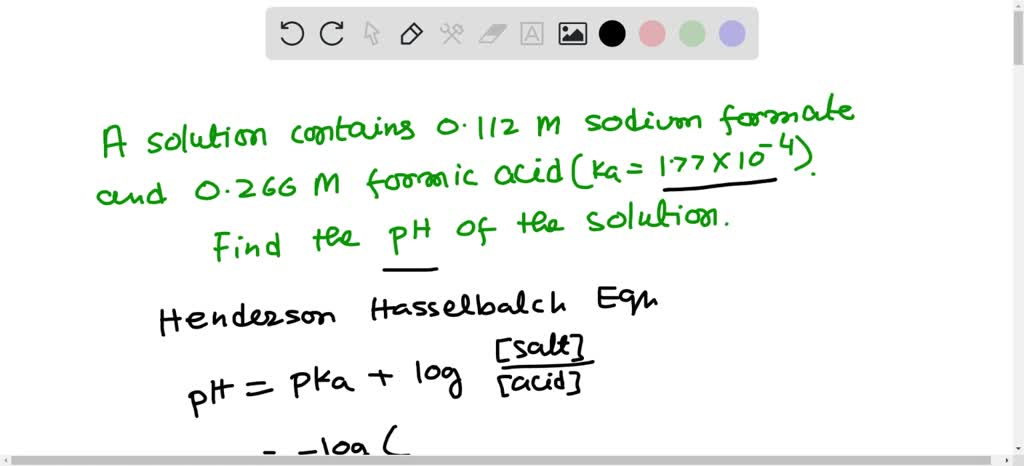 A solution contains 0.112 M sodium formate
and 0.266 M formic acid (Ka = 1.77 X 10⁻⁴).
Find the pH of the solution.
Henderson Hasselbalch Eqn
pH = pKa + log [salt]/[acid]
= -log (